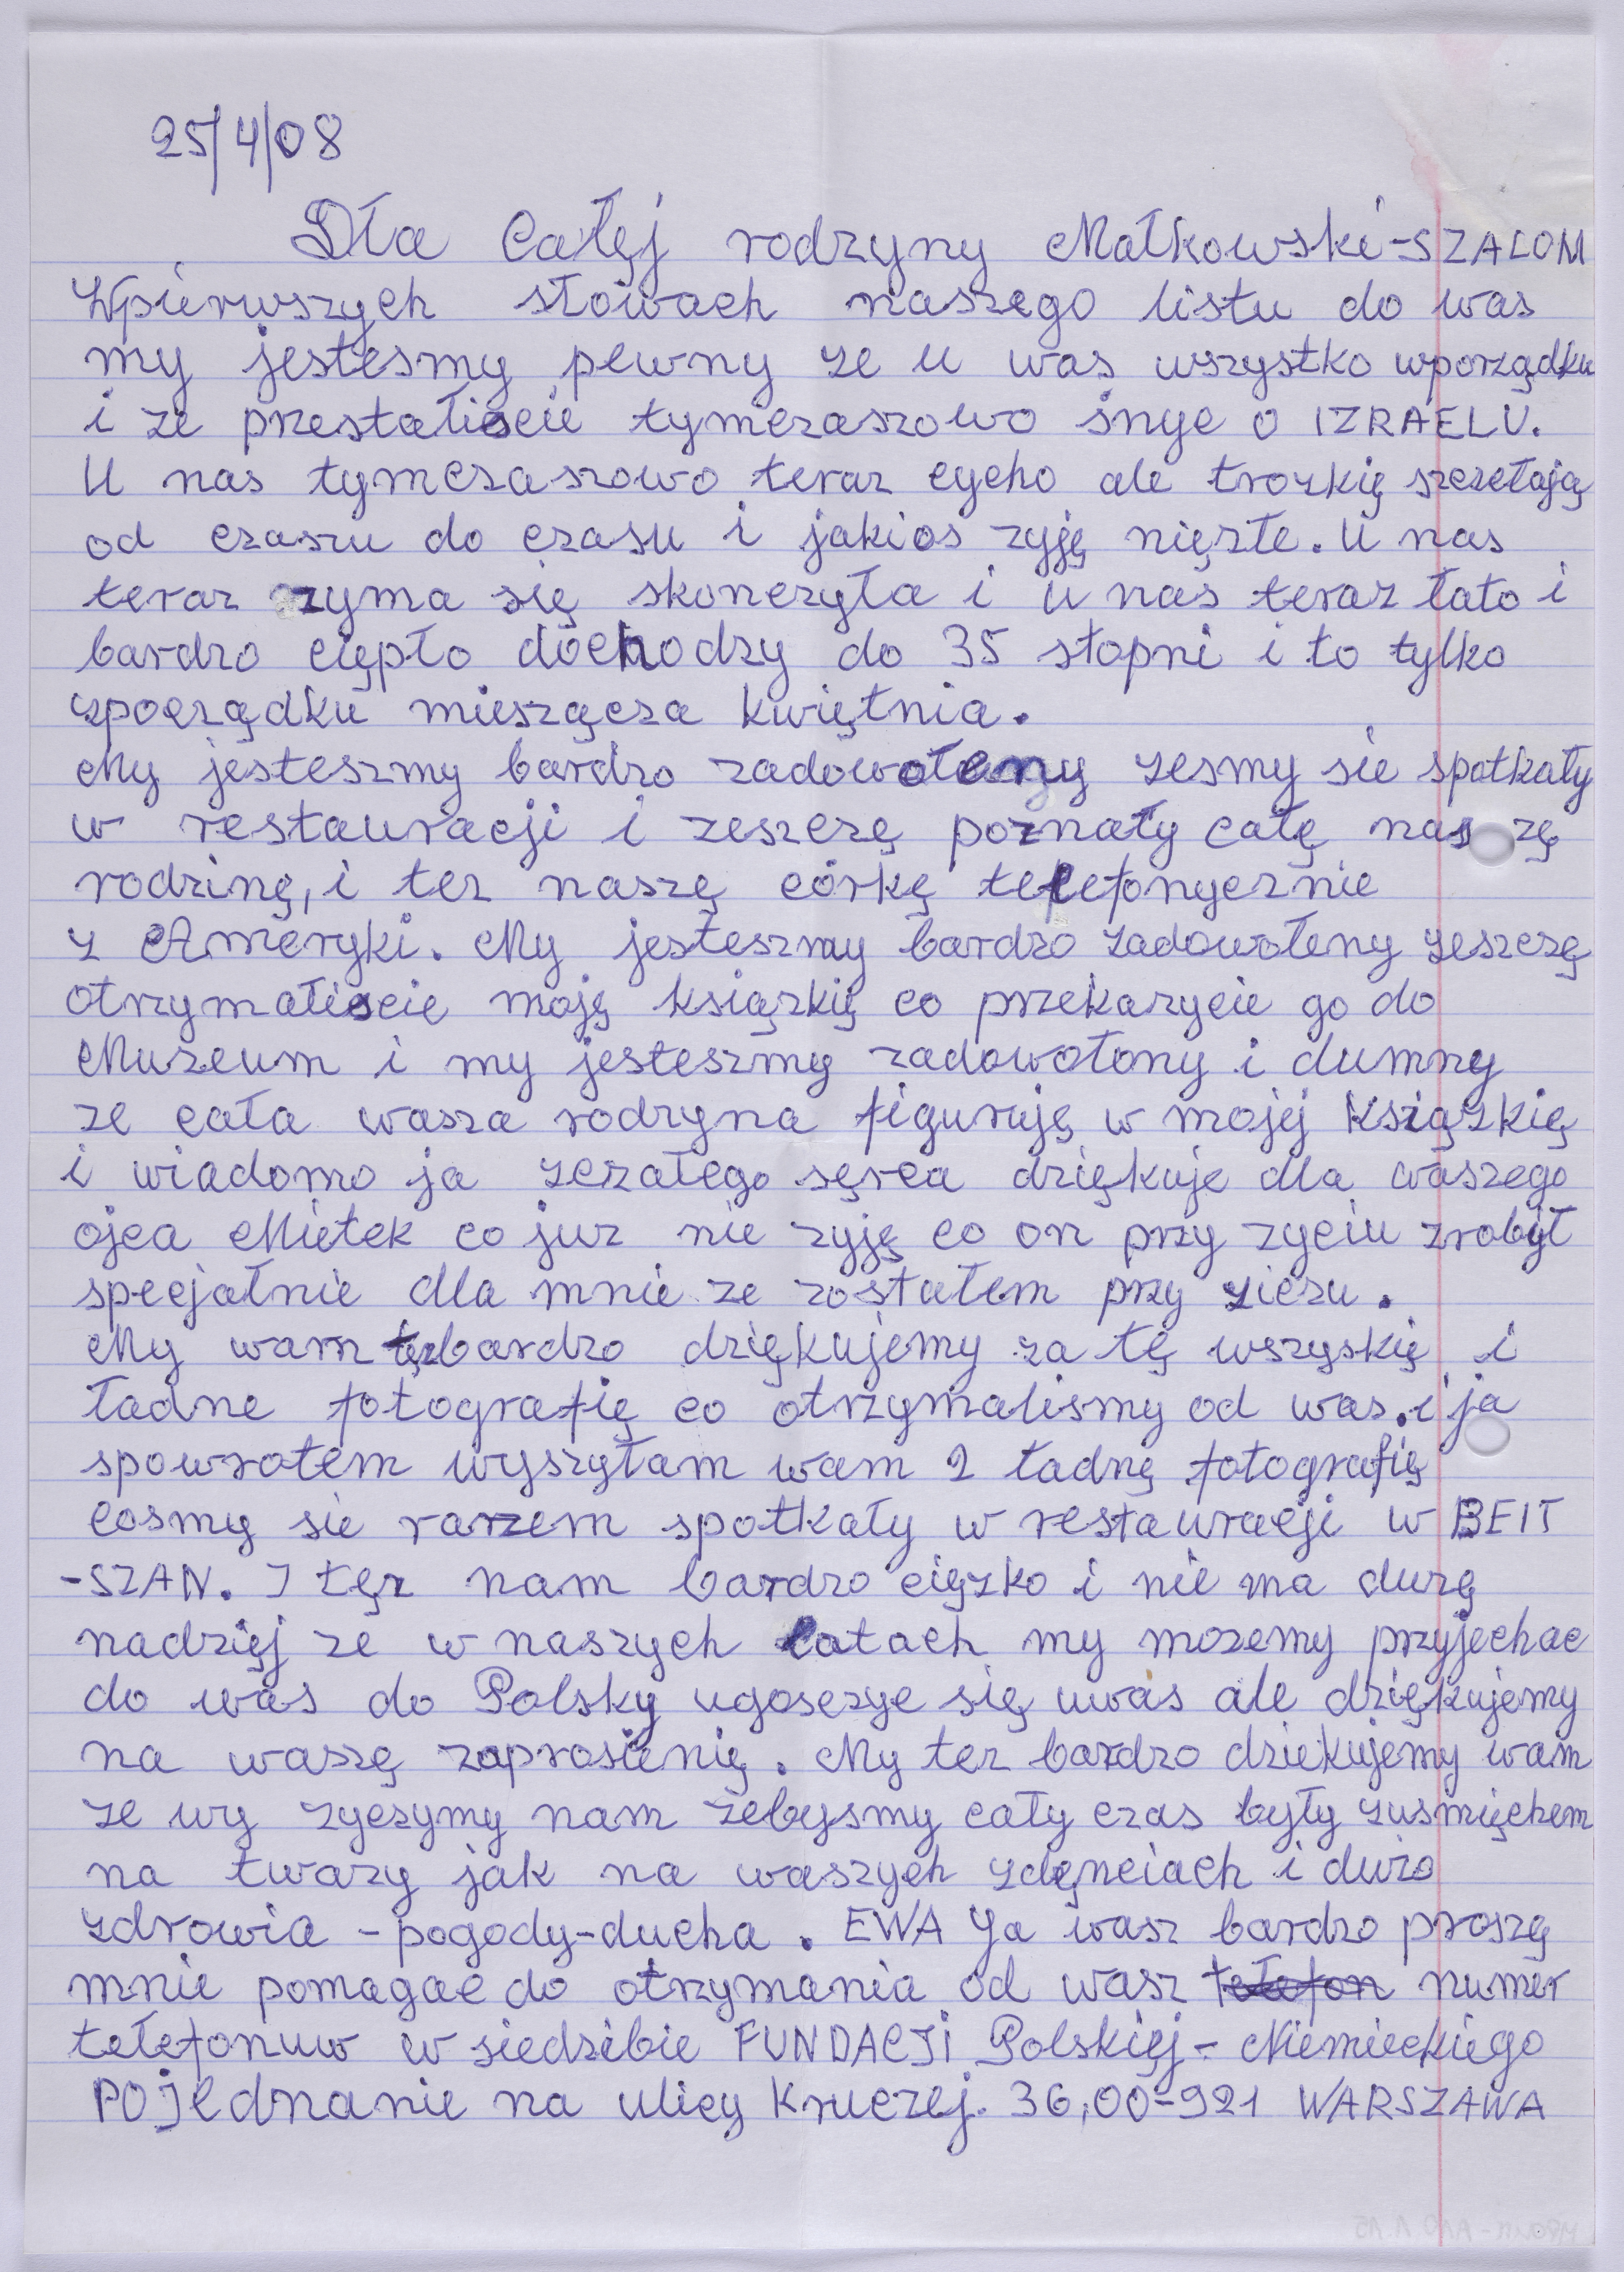 25/4/08
Dła Całęj rodzyny Małkowski-SZALOM
Wpierwszych słowach naszego listu do was
my jestesmy pewny ze u was wszystko wporządku
i ze przestaliscie tymczaszowo snyc o IZRAELU.
U nas tymczaszowo teraz cycho ale trozkię szczełają
od czaszu do czasu i jakios zyję nięzłe. U nas
teraz zyma się skonczyła i u nas teraz łato i
bardzo ciępło dochodzy do 35 stopni i to tylko
zpocządku mieszącza kwiętnia.
My jesteszmy bardzo zadowołeny zesmy sie spotkały
w restauracji i zeszczę poznały całę naszę
rodzinę, i tez naszę córkę telefonycznie
z Ameryki. My jesteszmy bardzo zadowołeny zeszczę
otrzymałiscie moję ksiązkię co przekazycie go do
Muzeum i my jesteszmy zadowołony i dumny
ze cała wasza rodzyna figuruję w mojej ksiązkię
i wiadomo ja zczałego sęrca dziękuje dla waszego
ojca Mietek co juz nie zyję co on przy zyciu zrobył
specjałnie dla mnie ze zostałem przy ziczu.
My wam tęzbardzo dziękujemy za tę wszyskię i
ładne fotografię co otrzymalismy od was. i ja
spowrotem wyszyłam wam 2 ładnę fotografię
cosmy sie razem spotkały w restauracji w BEIT
-SZAN. I tęz nam bardzo cięzko i nie ma duzę
nadzięj ze w naszych latach my mozemy przyjechac
do was do Polsky ugosczyc się uwas ale dziękujemy
na waszę zaprosienię. My tez bardzo dziekujemy wam
ze wy zyczymy nam żebysmy cały czas były zusmięchem
na twarzy jak na waszych zdęnciach i dużo
zdrowia - pogody-ducha. EWA Ja wasz bardzo proszę
mnie pomagac do otrzymania od wasz telefon numer
tełefonuw w siedzibie FUNDACJi Polskięj - Niemieckiego
POjednanie na ulicy Kruczej. 36, 00-921 WARSZAWA